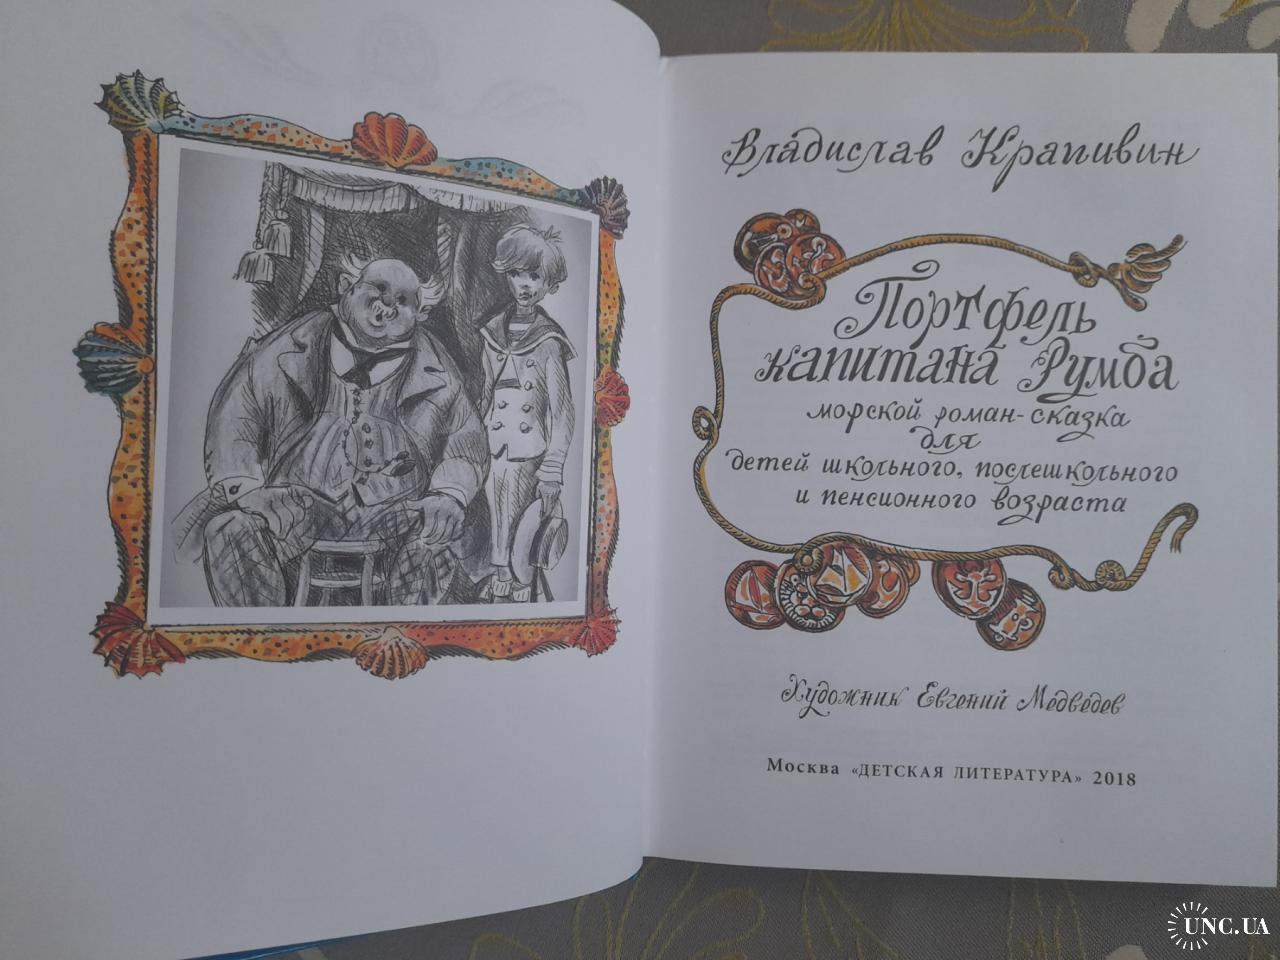 Владислав Крапивин
Портфель
капитана Румба
морской роман-сказка
для
детей школьного, послешкольного
и пенсионного возраста
Художник Евгений Медведев
Москва «ДЕТСКАЯ ЛИТЕРАТУРА» 2018
UNC.UA